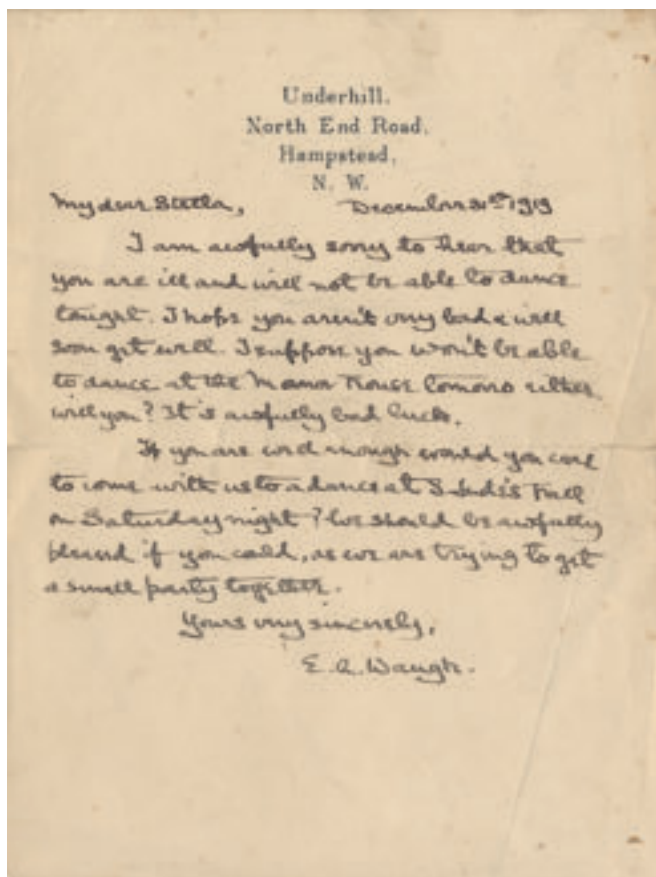 Underhill,
North End Road,
Hampstead,
N. W.
My dear Stella, December 31st 1919
I am awfully sorry to hear that
you are ill and will not be able to dance
tonight. I hope you aren't very bad & will
soon get well. I suppose you won't be able
to dance at the Manor House tomorro either
will you? It is awfully bad luck.
If you are well enough would you care
to come with us to a dance at S. Jude's Hall
on Saturday night? We should be awfully
pleased if you could, as we are trying to get
a small party together.
Yours very sincerely,
E. A. Waugh.